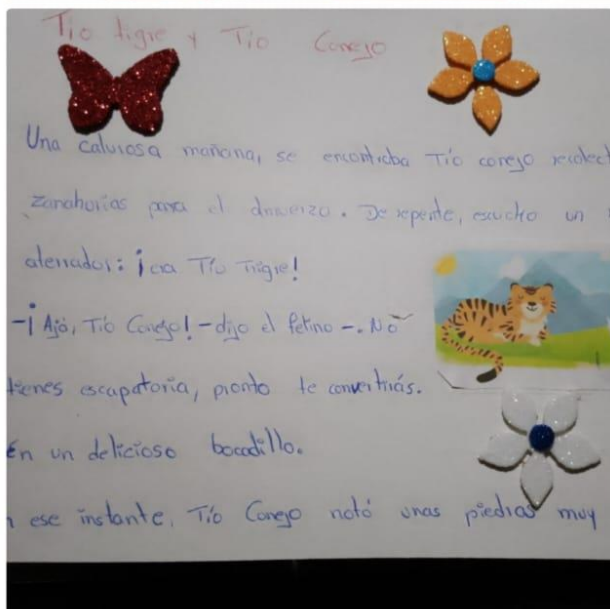 Tio tigre y Tio Conejo
Una calurosa mañana, se encontraba Tío conejo recolect
zanahorias para el almuerzo. De repente, escucho un
aterrador: ¡era Tío Trigre!
-¡Ajá, Tío Conejo! -dijo el felino -. No
tienes escapatoria, pronto te convertirás.
En un delicioso bocadillo.
n ese instante, Tío Conejo notó unas piedras muy